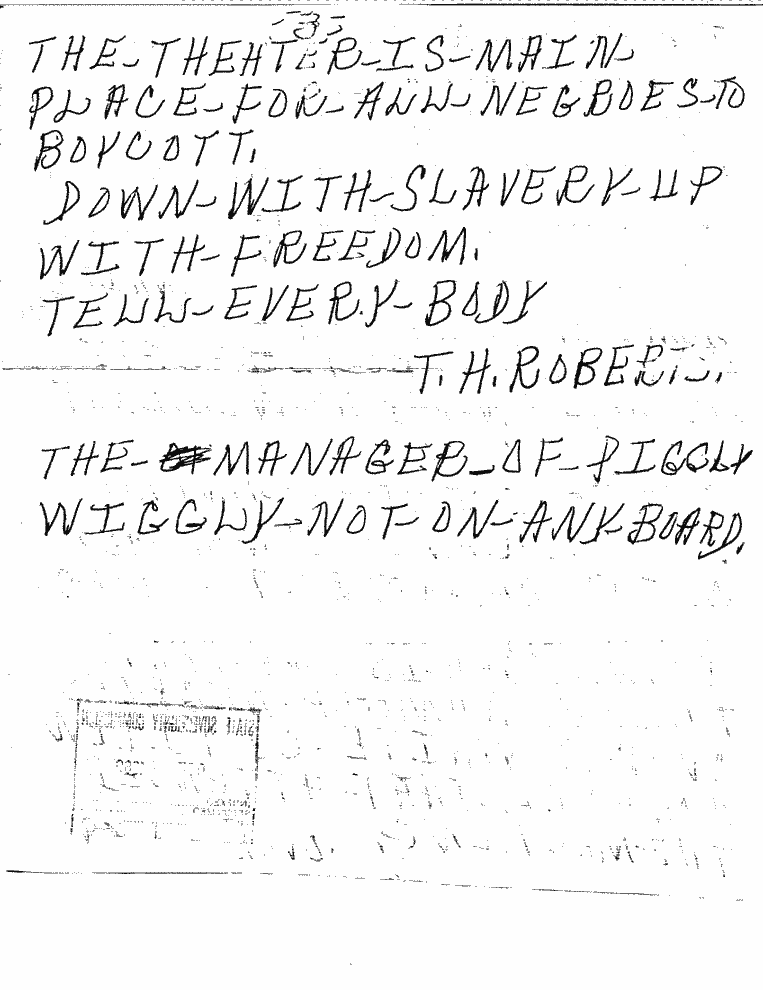 -3-
THE-THEATER-IS-MAIN
PLACE-FOR-ALL-NEGROES-TO
BOYCOTT.
DOWN-WITH-SLAVERY-UP
WITH-FREEDOM.
TELL-EVERY-BODY
T.H.ROBERTS.
THE-MANAGER-OF-PIGGLY
WIGGLY-NOT-ON-ANY-BOARD.
STATE SOVEREIGNTY COMMISSION